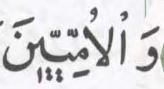 وَ الْاُمِّيّٖنَ